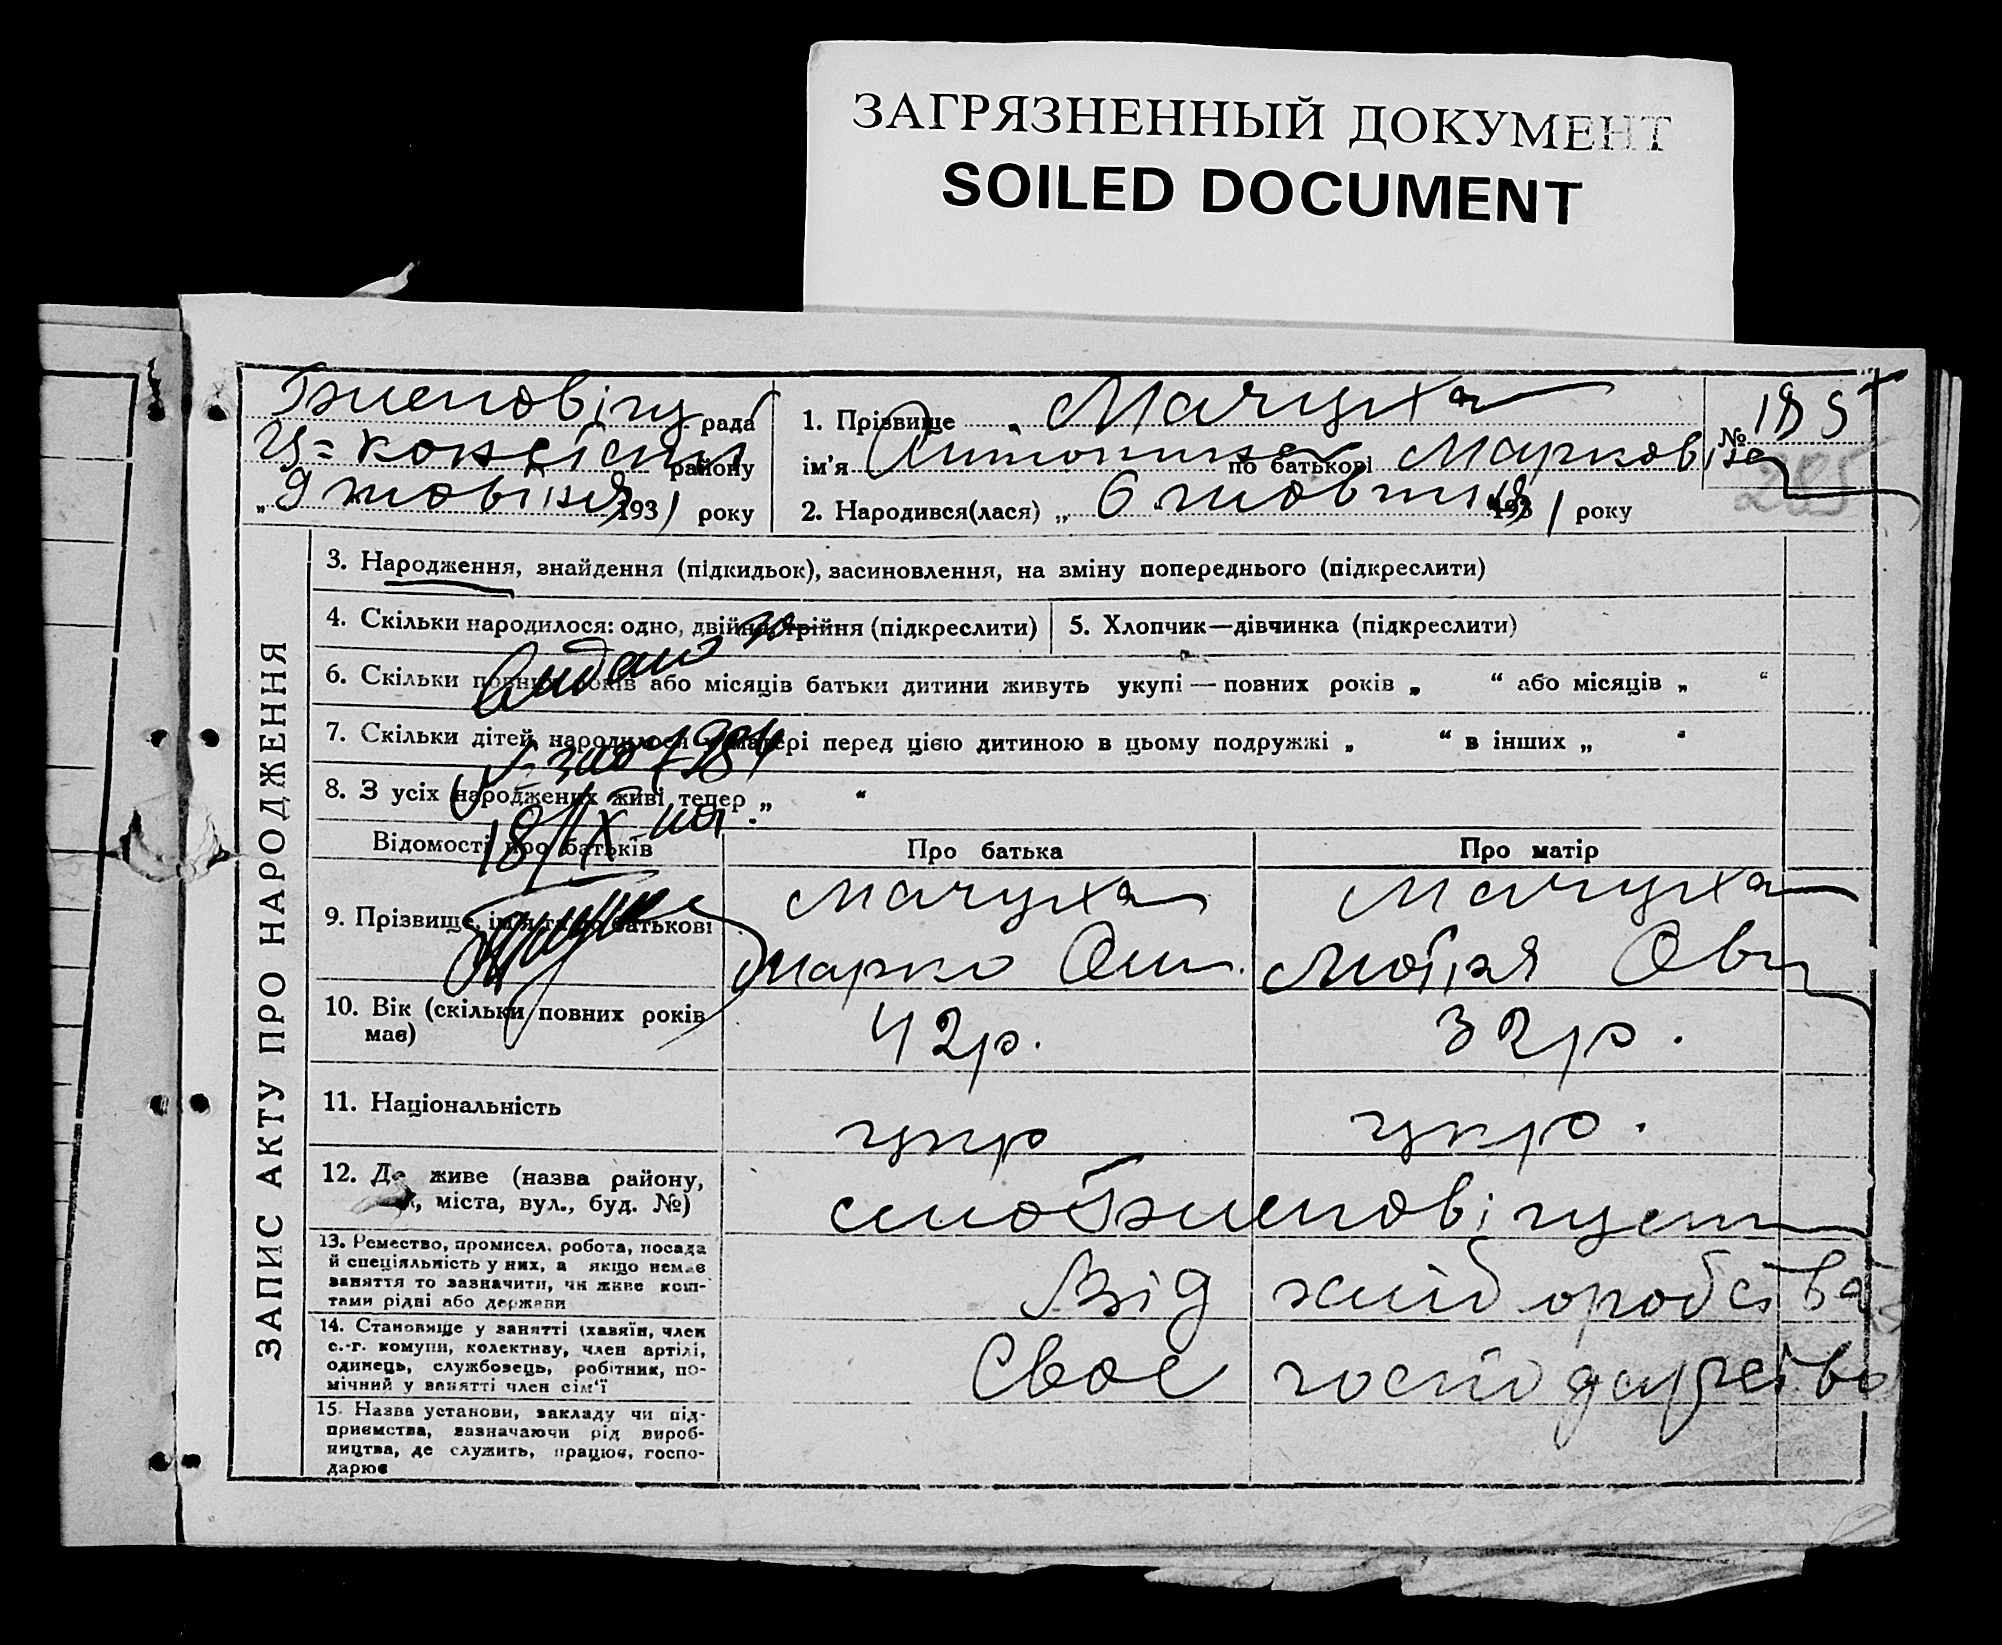 ЗАГРЯЗНЕННЫЙ ДОКУМЕНТ
SOILED DOCUMENT
рада
району
„ 9 жовтня 1931 року
1. Прізвище Мачуха
ім’я по батькові Марковна
2. Народився(лася) „ 6 жовтня 1931 року
№ 185
285
ЗАПИС АКТУ ПРО НАРОДЖЕННЯ
3. Народження, знайдення (підкидьок), засиновлення, на зміну попереднього (підкреслити)
4. Скільки народилося: одно, двійня, трійня (підкреслити)
5. Хлопчик—дівчинка (підкреслити)
6. Скільки повних років або місяців батьки дитини живуть укупі — повних років „ “ або місяців „ “
7. Скільки дітей народилося у матері перед цією дитиною в цьому подружжі „ “ в інших „ “
8. З усіх народжених живі тепер „ “
Відомості про батьків
Про батька
Про матір
9. Прізвище, ім’я та по батькові
Мачуха
Марко
Мачуха
10. Вік (скільки повних років має)
42 р.
32 р.
11. Національність
укр
укр.
12. Де живе (назва району, міста, вул., буд. №)
13. Ремество, промисел, робота, посада
й спеціяльність у них, а якщо немає
заняття то зазначити, чи живе кош-
тами рідні або держави
Від хліборобства
14. Становище у занятті (хазяїн, член
с.-г. комуни, колективу, член артілі,
одинець, службовець, робітник, по-
мічний у занятті член сім’ї
Своє господарство
15. Назва установи, закладу чи під-
приємства, зазначаючи рід вироб-
ництва, де служить, працює, госпо-
дарює